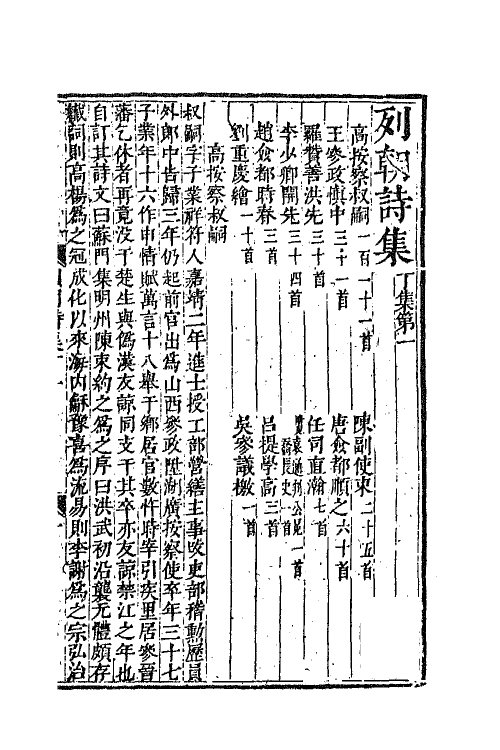 列朝詩集 丁集第一
高按察叔嗣一百一十一首 陳副使束二十五首
王參政慎中三十一首 唐僉都順之六十首
羅贊善洪先三十首 任司直瀚七首
李少卿開先三十四首
趙僉都時春三首 呂提學高三首
劉重慶繪一十首 吳參議檄一首
高按察叔嗣
叔嗣字子業祥符人嘉靖二年進士授工部營繕主事改吏部稽勳歷員
外郎中告歸三年仍起前官出為山西參政陞湖廣按察使卒年三十七
子業年十六作申情賦萬言十八舉于鄉居官數忤時宰引疾里居參晉
藩乞休者再竟沒于楚生與為漢友諒同支干其卒亦友諒禁江之年也
自訂其詩文曰蘇門集明州陳束約之為之序曰洪武初沿襲元體頗存
纖詞則高楊為之冠成化以來海內龢豫喜為流易則李謝為之宗弘治